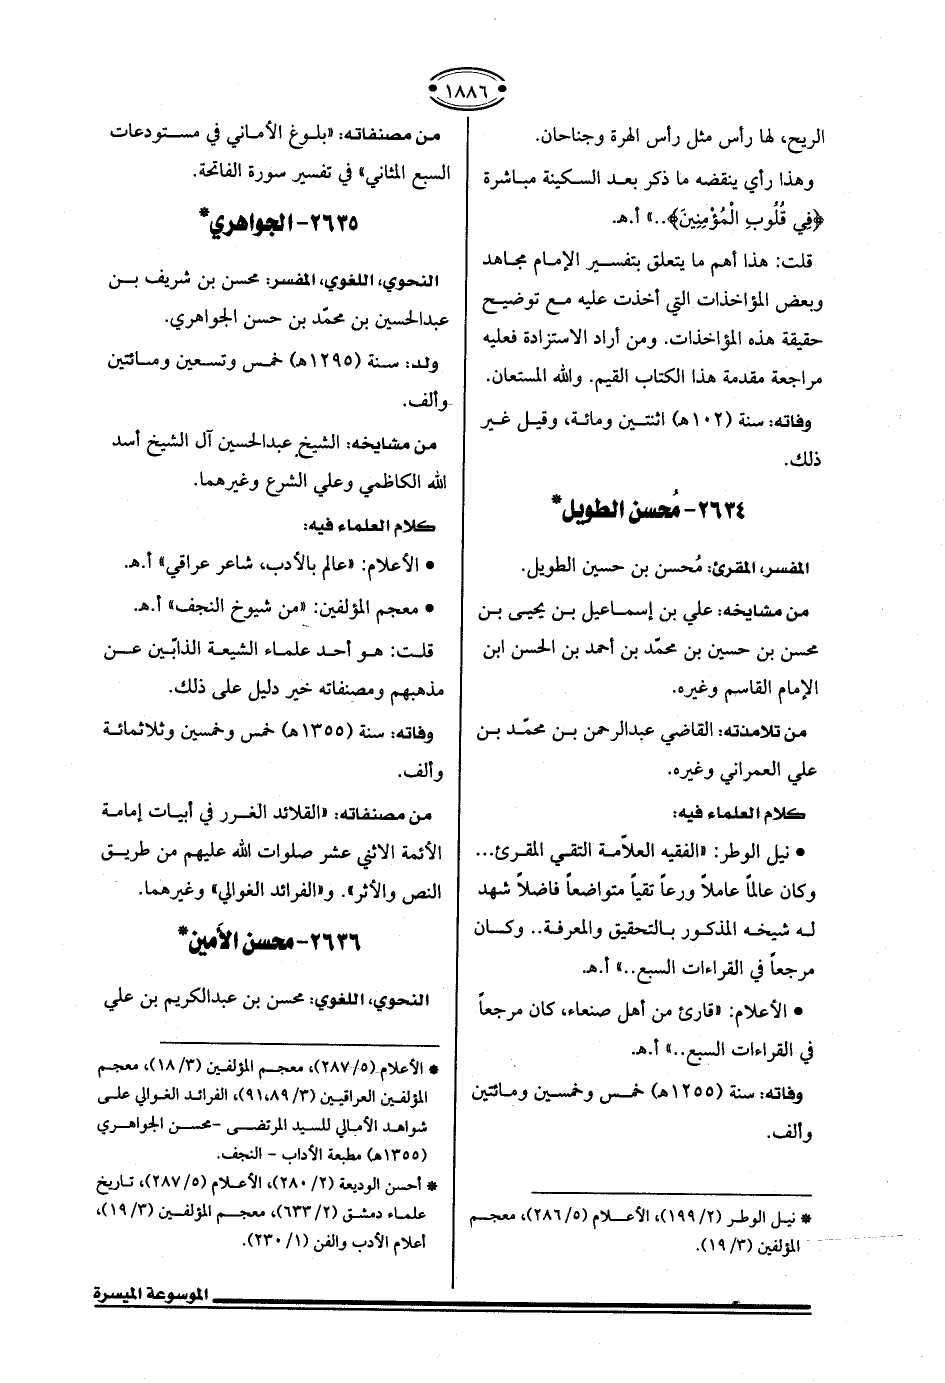 ١٨٨٦
الريح، لها رأس مثل رأس الهرة وجناحان.
وهذا رأي ينقضه ما ذكر بعد السكينة مباشرة
﴿فِي قُلُوبِ الْمُؤْمِنِينَ﴾..» أ.هـ.
قلت: هذا أهم ما يتعلق بتفسير الإمام مجاهد
وبعض المؤاخذات التي أخذت عليه مع توضيح
حقيقة هذه المؤاخذات. ومن أراد الاستزادة فعليه
مراجعة مقدمة هذا الكتاب القيم. والله المستعان.
وفاته: سنة (١٠٢هـ) اثنتين ومائة، وقيل غير
ذلك.
٢٦٣٤- مُحسن الطويل*
المفسر، المقرئ: مُحسن بن حسين الطويل.
من مشايخه: علي بن إسماعيل بن يحيى بن
محسن بن حسين بن محمّد بن أحمد بن الحسن ابن
الإمام القاسم وغيره.
من تلامذته: القاضي عبدالرحمن بن محمّد بن
علي العمراني وغيره.
كلام العلماء فيه:
• نيل الوطر: «الفقيه العلاّمة التقي المقرئ...
وكان عالماً عاملاً ورعاً تقياً متواضعاً فاضلاً شهد
له شيخه المذكور بالتحقيق والمعرفة.. وكان
مرجعاً في القراءات السبع..» أ.هـ.
• الأعلام: «قارئ من أهل صنعاء، كان مرجعاً
في القراءات السبع..» أ.هـ.
وفاته: سنة (١٢٥٥هـ) خمس وخمسين ومائتين
وألف.
* نيل الوطر (٢/١٩٩)، الأعلام (٥/٢٨٦)، معجم
المؤلفين (٣/١٩).
من مصنفاته: «بلوغ الأماني في مستودعات
السبع المثاني» في تفسير سورة الفاتحة.
٢٦٣٥- الجواهري*
النحوي، اللغوي، المفسر: محسن بن شريف بن
عبدالحسين بن محمّد بن حسن الجواهري.
ولد: سنة (١٢٩٥هـ) خمس وتسعين ومائتين
وألف.
من مشايخه: الشيخ عبدالحسين آل الشيخ أسد
الله الكاظمي وعلي الشرع وغيرهما.
كلام العلماء فيه:
• الأعلام: «عالم بالأدب، شاعر عراقي» أ.هـ.
• معجم المؤلفين: «من شيوخ النجف» أ.هـ.
قلت: هو أحد علماء الشيعة الذابّين عن
مذهبهم ومصنفاته خير دليل على ذلك.
وفاته: سنة (١٣٥٥هـ) خمس وخمسين وثلاثمائة
وألف.
من مصنفاته: «القلائد الغرر في أبيات إمامة
الأئمة الاثني عشر صلوات الله عليهم من طريق
النص والأثر». و«الفرائد الغوالي» وغيرهما.
٢٦٣٦- محسن الأمين*
النحوي، اللغوي: محسن بن عبدالكريم بن علي
* الأعلام (٥/٢٨٧)، معجم المؤلفين (٣/١٨)، معجم
المؤلفين العراقيين (٣/٨٩،٩١)، الفرائد الغوالي على
شواهد الأمالي للسيد المرتضى -محسن الجواهري
(١٣٥٥هـ) مطبعة الأداب - النجف.
* أحسن الوديعة (٢/٢٨٠)، الأعلام (٥/٢٨٧)، تاريخ
علماء دمشق (٢/٦٣٣)، معجم المؤلفين (٣/١٩)،
أعلام الأدب والفن (١/٢٣٠).
الموسوعة الميسرة